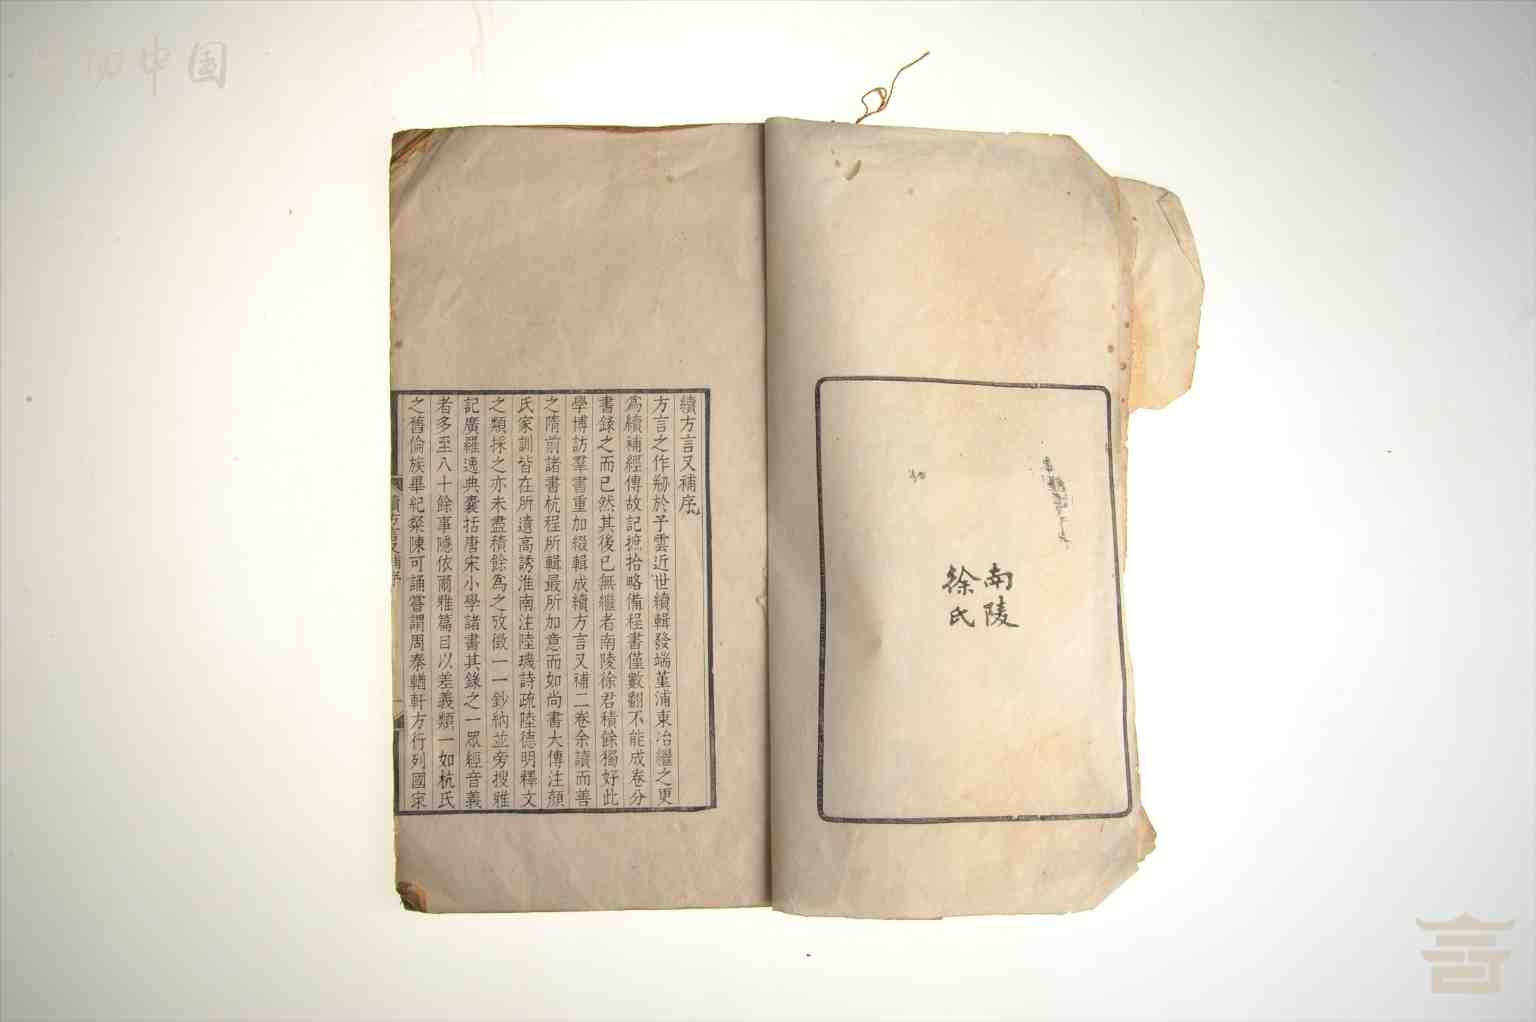 南陵
徐氏
續方言又補序
方言之作刱於予雲近世續輯發端堇浦東冶繼之更
爲續補經傳故記摭拾略備程書僅數翻不能成卷分
書錄之而已然其後已無繼者南陵徐君積餘獨好此
學博訪羣書重加綴輯成續方言又補二卷余讀而善
之隋前諸書杭程所輯最所加意而如尚書大傳注顏
氏家訓皆在所遺高誘淮南注陸璣詩疏陸德明釋文
之類採之亦未盡積餘爲之攷徵一一鈔納並旁搜雅
記廣羅逸典囊括唐宋小學諸書其錄之一眾經音義
者多至八十餘事隱依爾雅篇目以差義類一如杭氏
之舊倫族畢紀粲陳可誦嘗謂周秦輶軒方行列國家
續方言又補序
一
中国